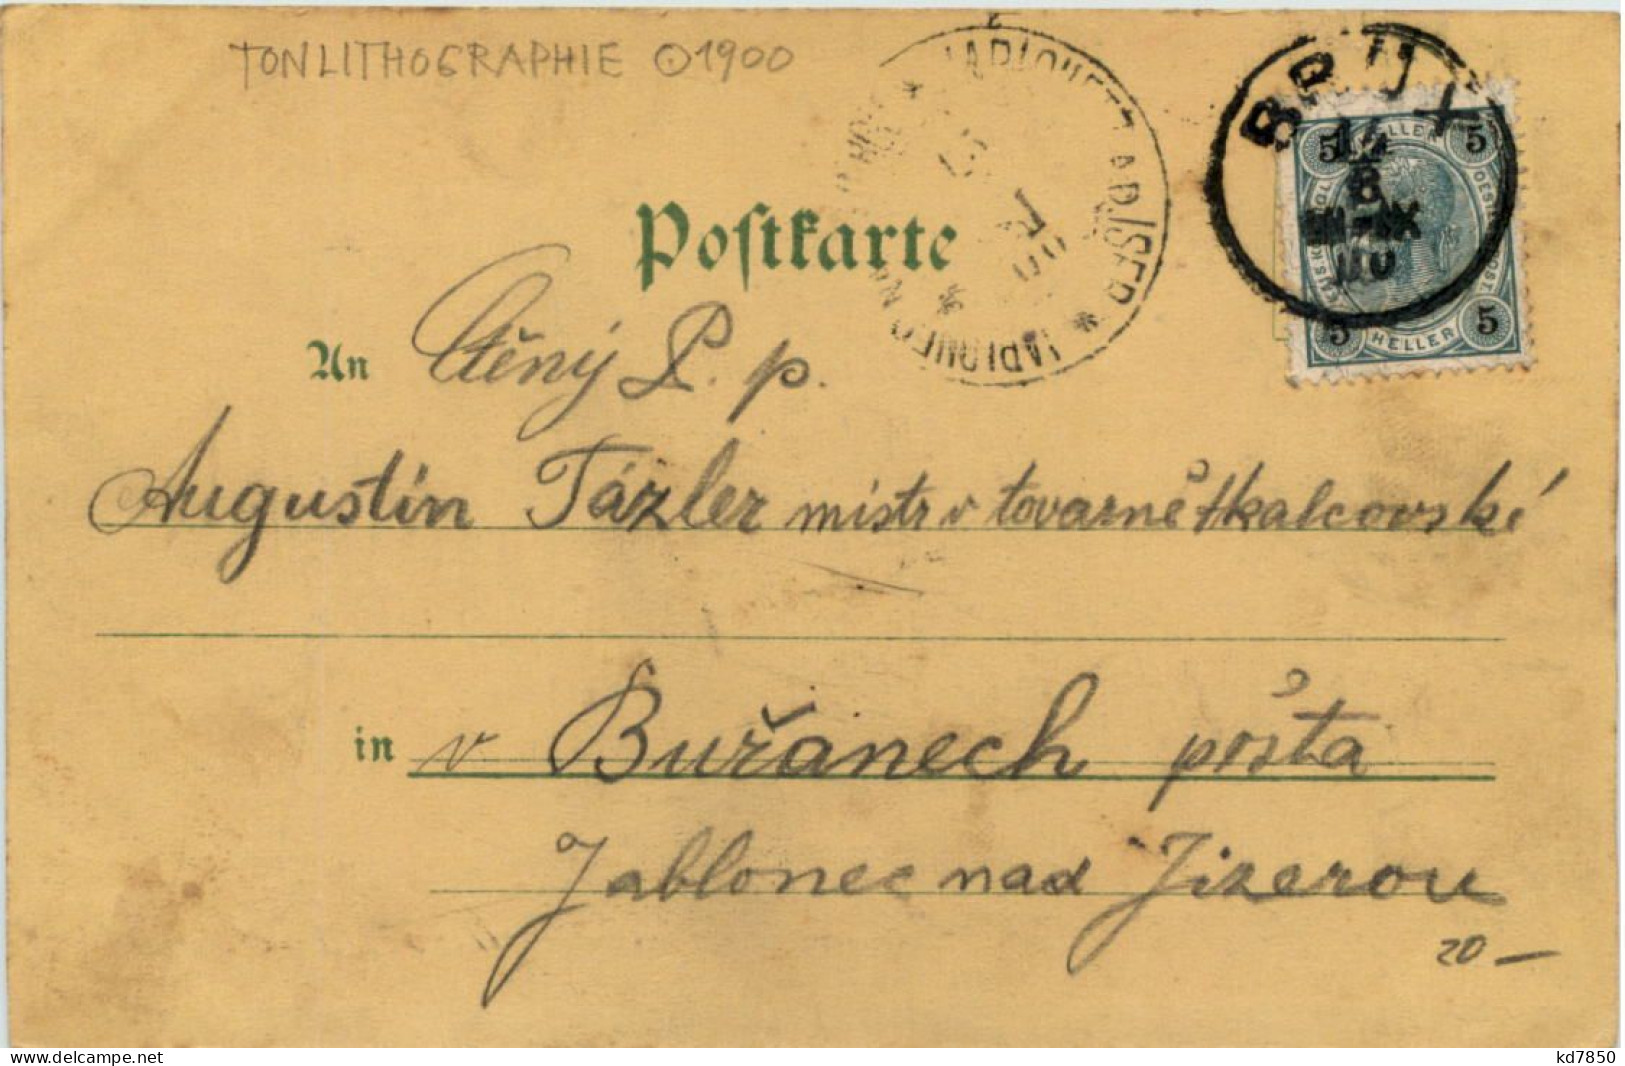 TONLITHOGRAPHIE ⊙1900
BRÜX
14
8
00
5 HELLER 5
5 HELLER 5
Postkarte
An Ctěný P. p.
Augustín Tázler mistr v tovarně tkalcovské
in v Buřanech pošta
Jablonec nad Jizerou
20 –
www.delcampe.net
kd7850